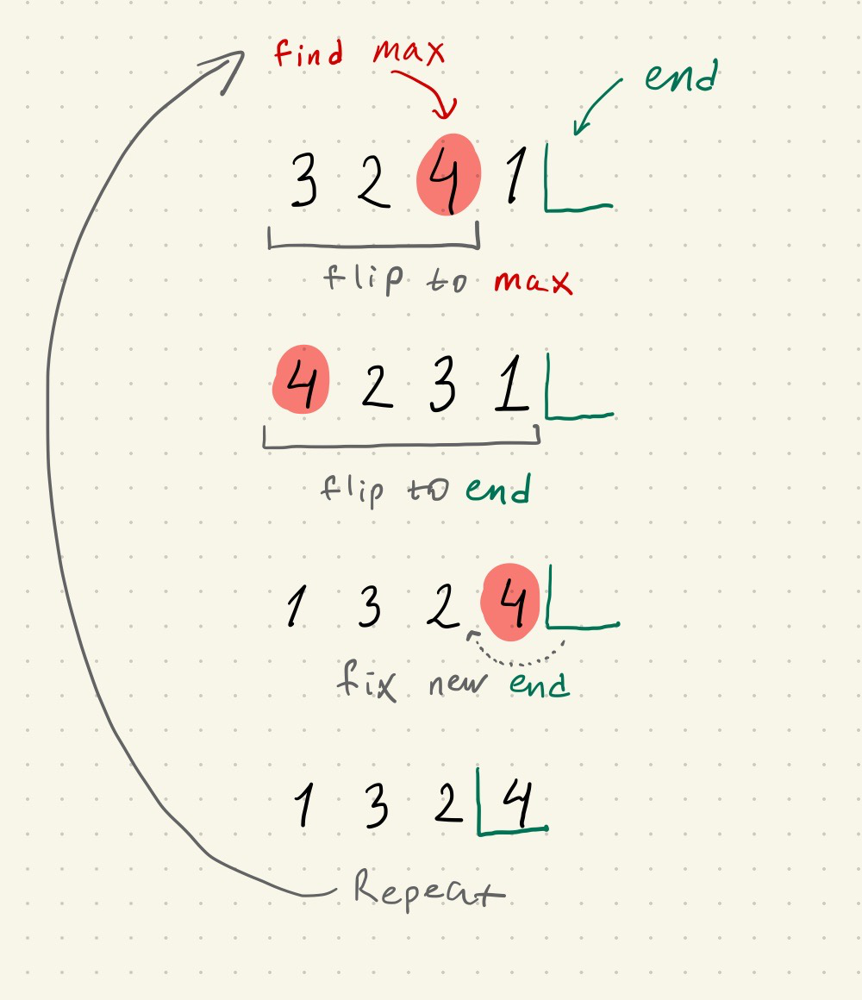 find max
end
3 2 4 1
flip to max
4 2 3 1
flip to end
1 3 2 4
fix new end
1 3 2 4
Repeat